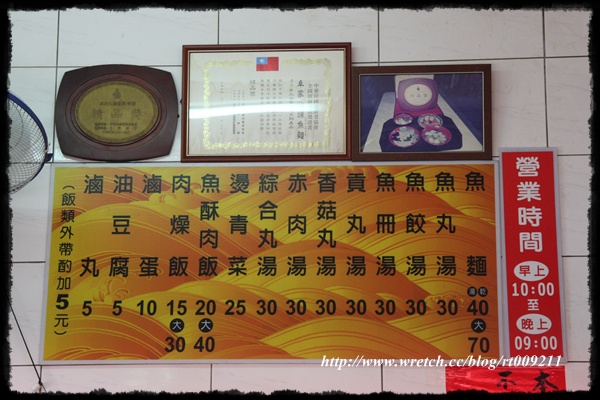 精品獎
卓家汕頭魚麵
魚麵 湯 乾 40 大 70
魚丸湯 30
魚餃湯 30
魚冊湯 30
貢丸湯 30
香菇丸湯 30
赤肉湯 30
綜合丸湯 30
燙青菜 25
魚酥肉飯 20 大 40
肉燥飯 15 大 30
滷蛋 10
油豆腐 5
滷丸 5
(飯類外帶酌加5元)
營業時間
早上
10:00
至
晚上
09:00
http://www.wretch.cc/blog/rt009211